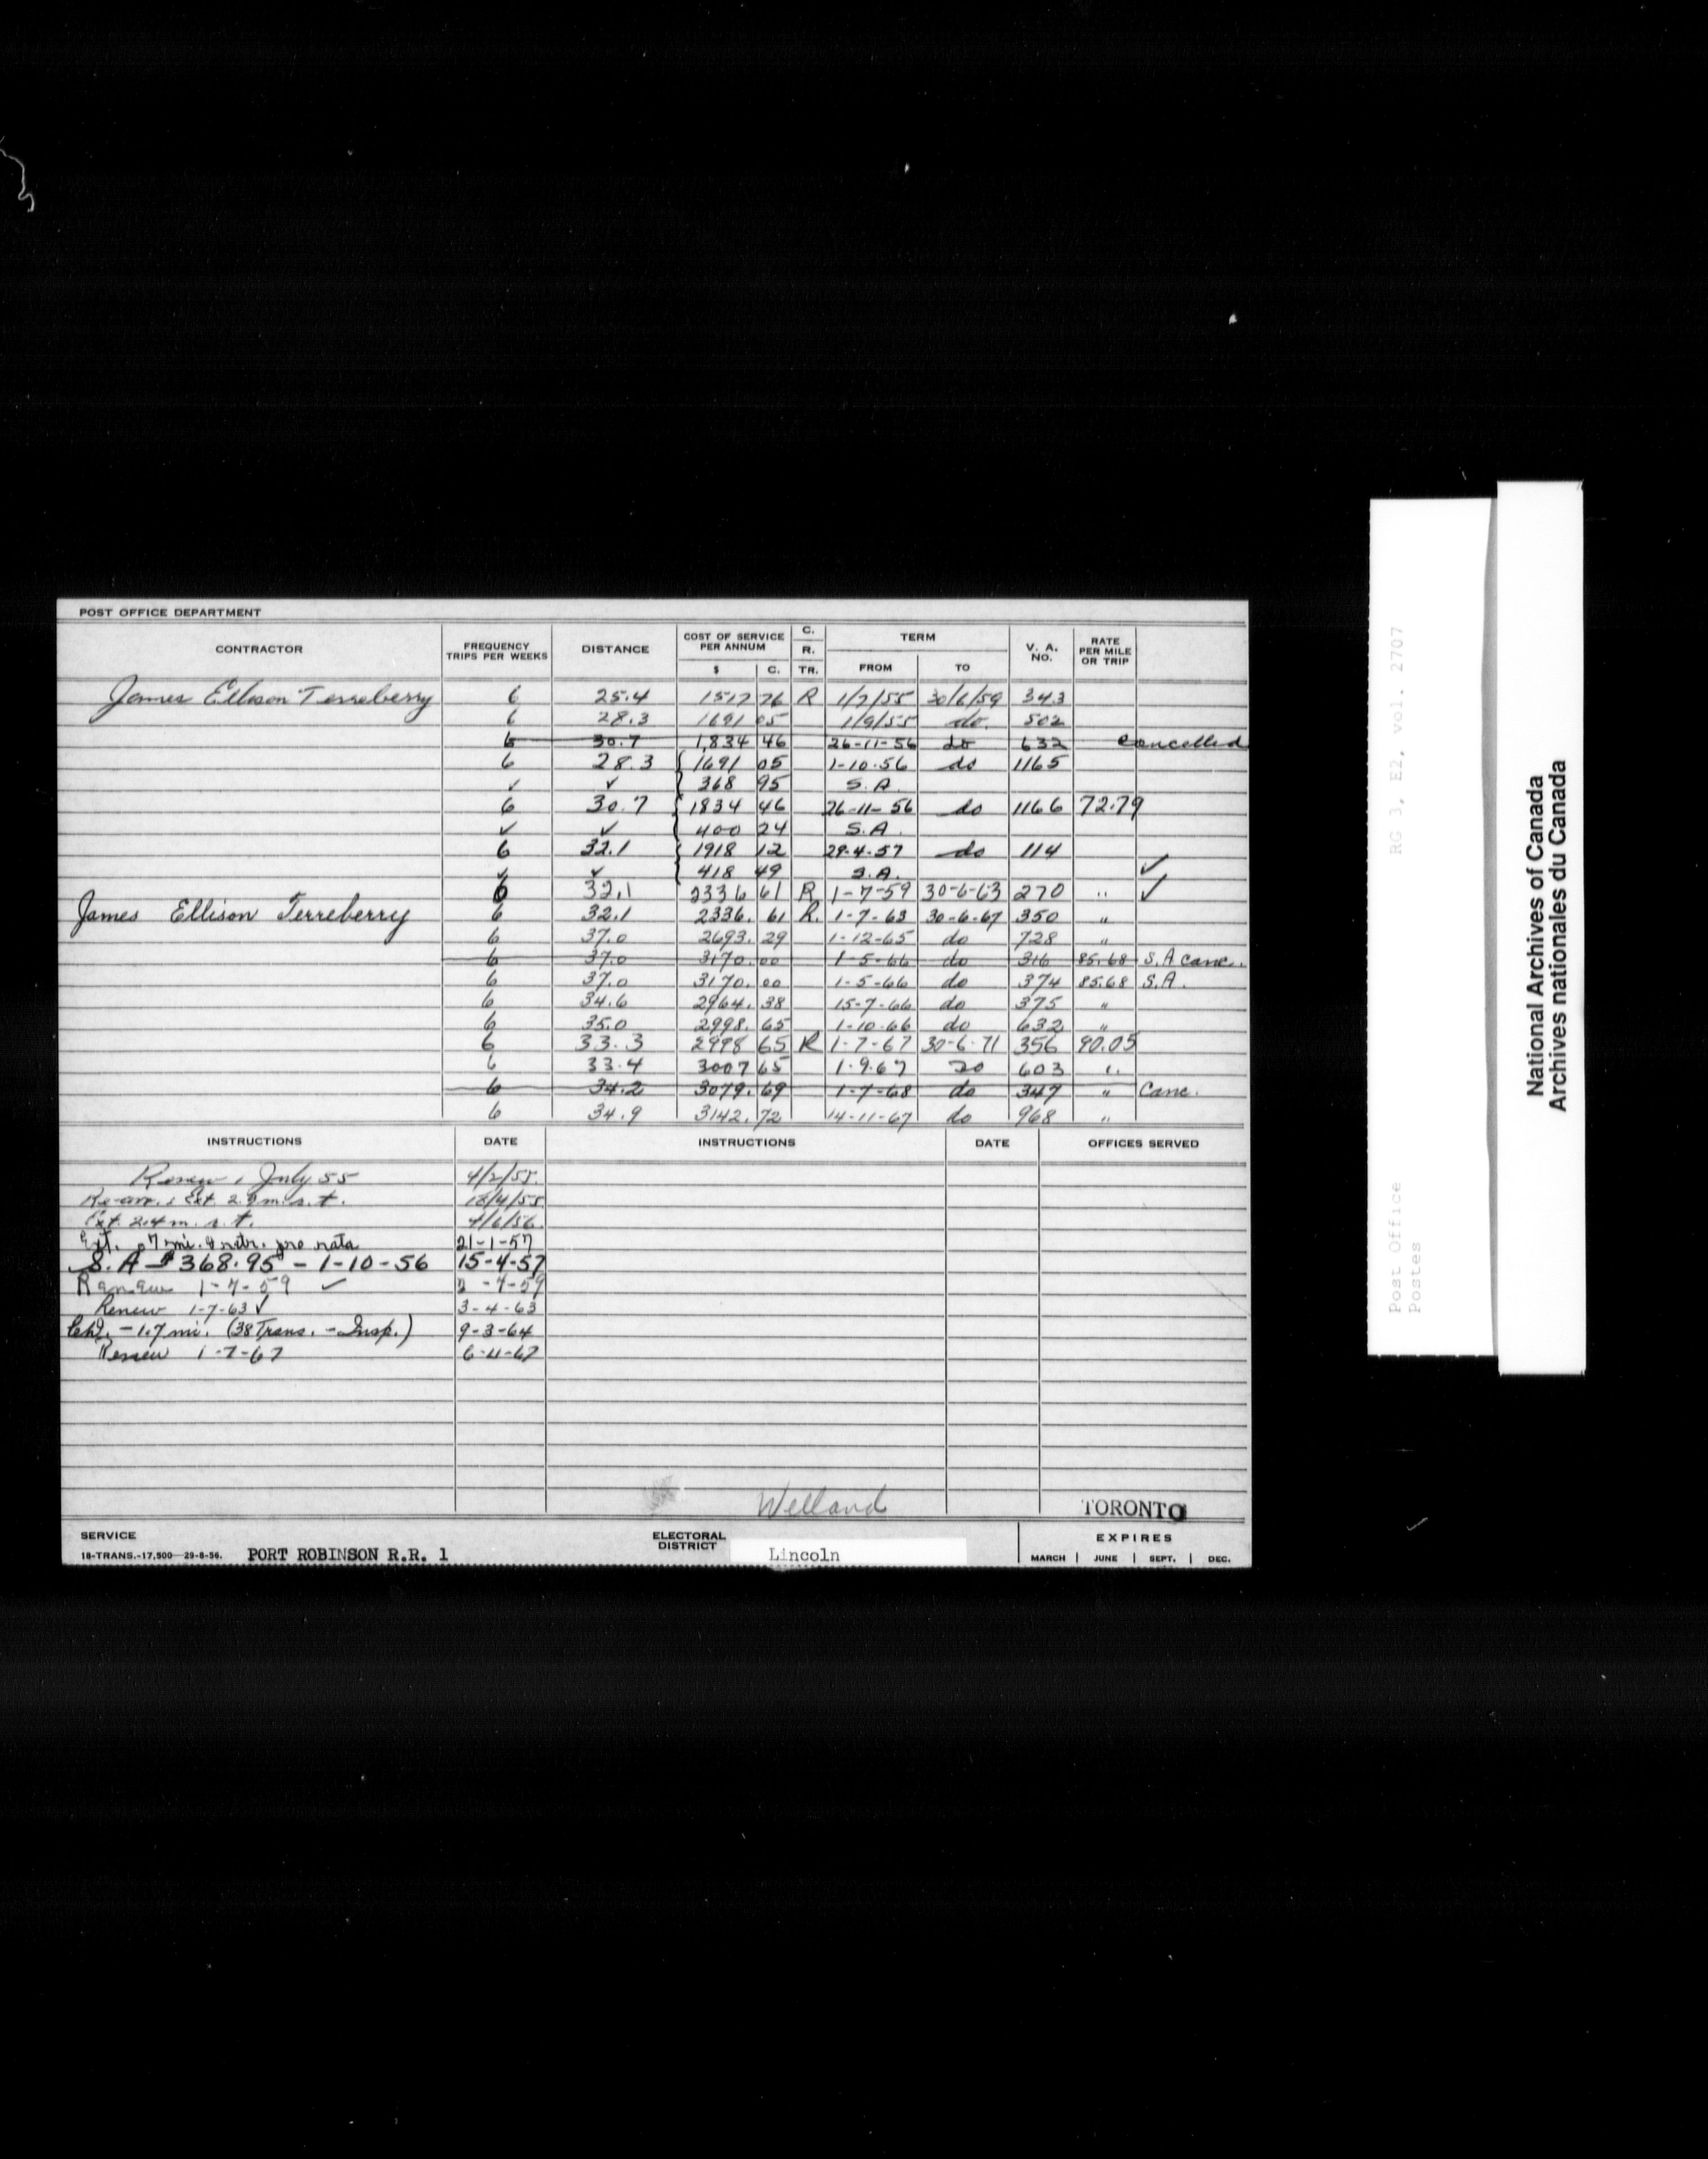 POST OFFICE DEPARTMENT
CONTRACTOR FREQUENCY TRIPS PER WEEKS DISTANCE COST OF SERVICE PER ANNUM $ C. C. R. TR. TERM FROM TO V. A. NO. RATE PER MILE OR TRIP
James Ellison Terreberry 6 25.4 1517 76 R 1/7/55 30/6/59 343
6 28.3 1691 05 1/9/55 do. 502
6 30.7 1,834 46 26-11-56 do 632 cancelled
6 28.3 1691 05 1-10-56 do 1165
✓ ✓ 368 95 S.A.
6 30.7 1834 46 26-11-56 do 1166 72.79
✓ ✓ 400 24 S.A.
6 32.1 1918 12 29-4-57 do 114
✓ ✓ 418 49 S.A. ✓
6 32.1 2336 61 R 1-7-59 30-6-63 270 " ✓
James Ellison Terreberry 6 32.1 2336. 61 R. 1-7-63 30-6-67 350 "
6 37.0 2693. 29 1-12-65 do 728 "
6 37.0 3170. 00 1-5-66 do 316 85.68 S.A canc.
6 37.0 3170. 00 1-5-66 do 374 85.68 S.A.
6 34.6 2964. 38 15-7-66 do 375 "
6 35.0 2998. 65 1-10-66 do 632 "
6 33.3 2998 65 R 1-7-67 30-6-71 356 90.05
6 33.4 3007 65 1-9-67 do 603 "
6 34.2 3079. 69 1-7-68 do 347 " Canc.
6 34.9 3142. 72 14-11-67 do 968 "
INSTRUCTIONS DATE INSTRUCTIONS DATE OFFICES SERVED
Renew 1 July 55 4/2/55
Re-arr. & Ext. 2.9 m. s. t. 18/4/55
Ext. 2.4 m. s. t. 4/6/56
Ext. .7 mi. pro rata 21-1-57
S.A $368.95 - 1-10-56 15-4-57
Renew 1-7-59 ✓ -4-59
Renew 1-7-63 ✓ 3-4-63
Chg. - 1.7 mi. (38 Trans. - Insp.) 9-3-64
Renew 1-7-67 6-4-67
Welland
TORONTO
SERVICE ELECTORAL DISTRICT EXPIRES
18-TRANS.-17,500-29-8-56. PORT ROBINSON R.R. 1 Lincoln MARCH | JUNE | SEPT. | DEC.
RG 3, E2, vol. 2707
Post Office
Postes
National Archives of Canada
Archives nationales du Canada